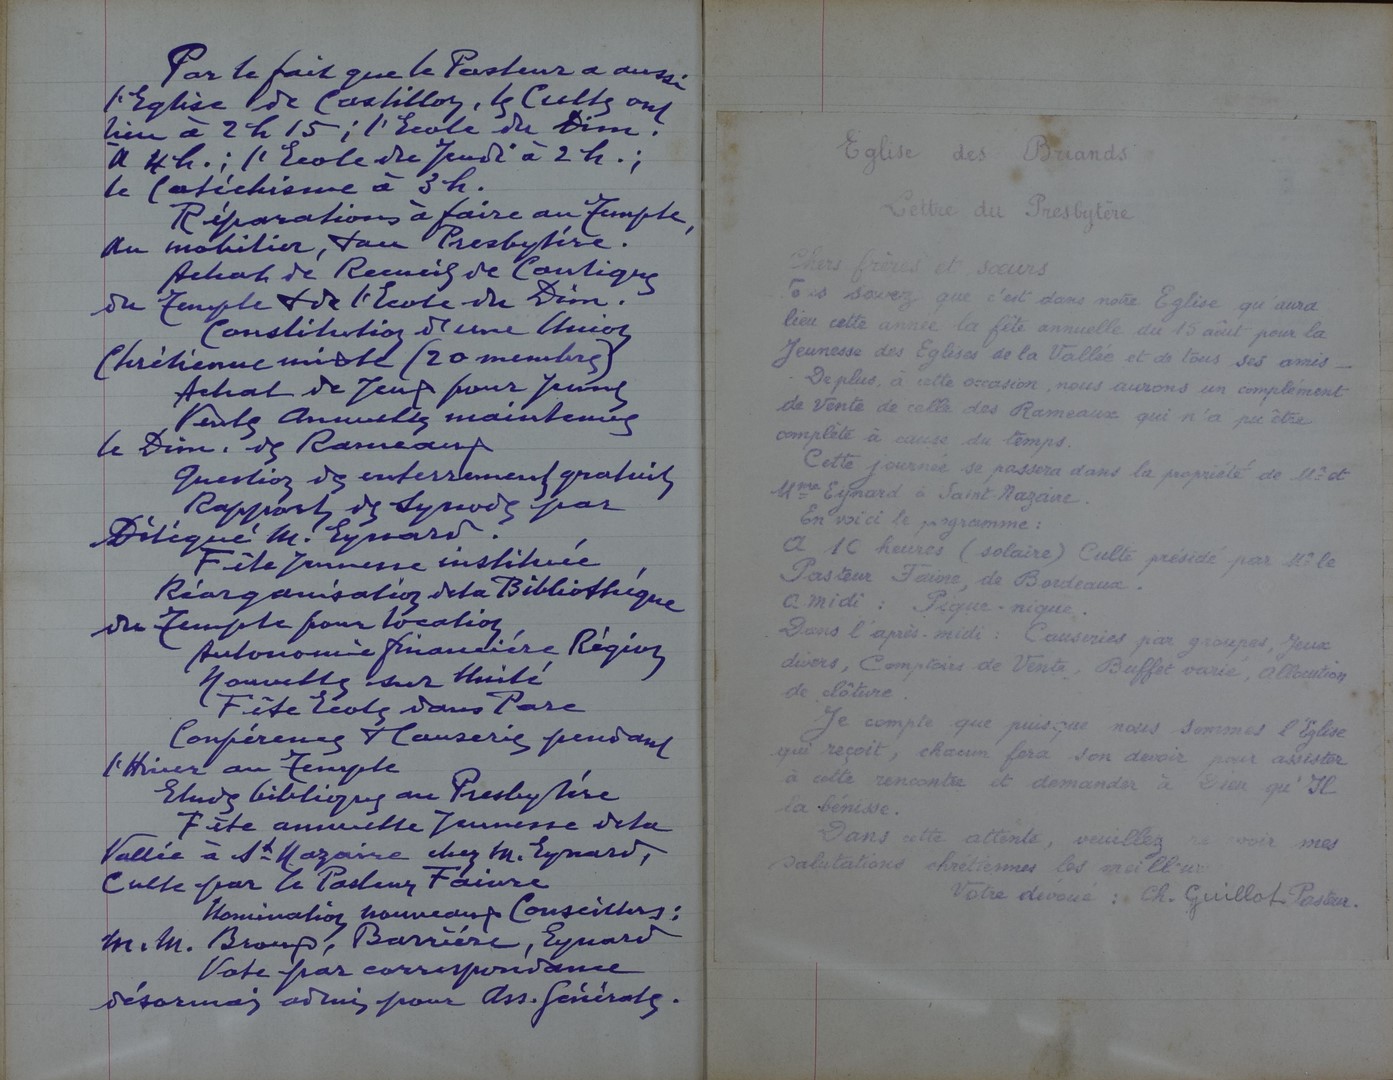 Par le fait que le Pasteur a aussi
l'Eglise de Castillon, les Cultes ont
lieu à 2 h 15 ; l'Ecole du Dim.
à 4 h. ; l'Ecole du Jeudi à 2 h. ;
le Catéchisme à 3 h.
Réparations à faire au Temple,
au mobilier, & au Presbytère.
Achat de Recueils de Cantiques
du Temple & de l'Ecole du Dim.
Constitution d'une Union
Chrétienne mixte (20 membres)
Achat de Jeux pour Jeunes
Ventes Annuelles maintenues
le Dim. des Rameaux
Question des enterrements gratuits
Rapports des Synodes par
Délégué M. Eynard.
Fête Jeunesse instituée
Réorganisation de la Bibliothèque
du Temple pour location
Autonomie financière Région
Nouvelles sur Unité
Fête Ecoles dans Parc
Conférences & Causeries pendant
l'Hiver au Temple
Etudes bibliques au Presbytère
Fête annuelle Jeunesse de la
Vallée à St Nazaire chez M. Eynard,
Culte par le Pasteur Faivre
Nomination nouveaux Conseillers :
M. M. Broux, Barrière, Eynard
Vote par correspondance
désormais admis pour Ass. Générales.
Eglise des Briands
Lettre du Presbytère
Chers frères et sœurs
Vous savez que c'est dans notre Eglise qu'aura
lieu cette année la fête annuelle du 15 août pour la
Jeunesse des Eglises de la Vallée et de tous ses amis —
De plus, à cette occasion, nous aurons un complément
de Vente de celle des Rameaux qui n'a pu être
complète à cause du temps.
Cette journée se passera dans la propriété de Mr et
Mme Eynard à Saint Nazaire.
En voici le programme :
A 10 heures (solaire) Culte présidé par Mr le
Pasteur Faivre, de Bordeaux.
A midi : Pique-nique.
Dans l'après-midi : Causeries par groupes, Jeux
divers, Comptoirs de Vente, Buffet varié, Allocution
de clôture.
Je compte que puisque nous sommes l'Eglise
qui reçoit, chacun fera son devoir pour assister
à cette rencontre et demander à Dieu qu'Il
la bénisse.
Dans cette attente, veuillez recevoir mes
salutations chrétiennes les meilleures
Votre dévoué : Ch. Guillot Pasteur.